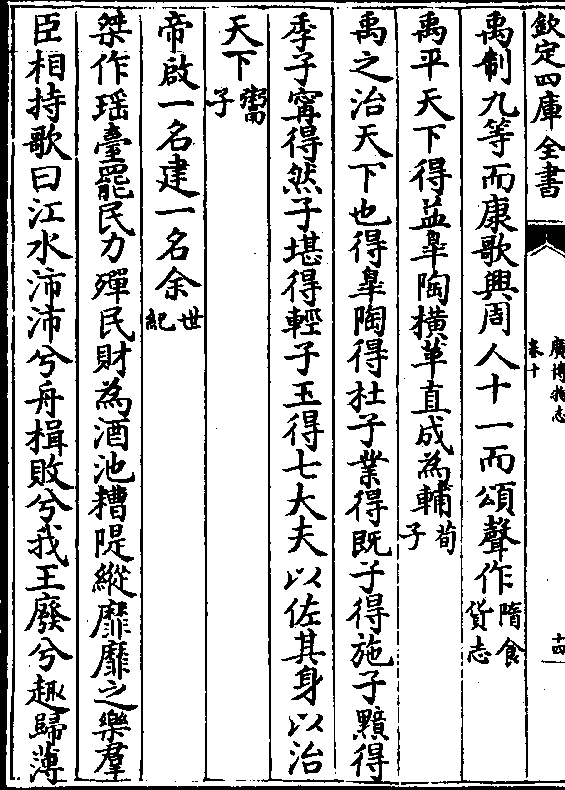 欽定四庫全書
廣博物志
卷十
十四
禹制九等而康歌興周人十一而頌聲作隋食貨志
禹平天下得益皋陶橫革直成為輔荀子
禹之治天下也得皋陶得杜子業得既子得施子黯得
季子甯得然子堪得輕子玉得七大夫以佐其身以治
天下鬻子
帝啟一名建一名余世紀
桀作瑶臺罷民力殫民財為酒池糟隄縱靡靡之樂羣
臣相持歌曰江水沛沛兮舟楫敗兮我王廢兮趣歸薄